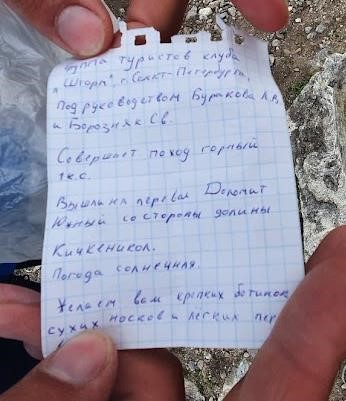 Группа туристов клуба
"Шторм", г. Санкт-Петербурга,
под руководством Буракова А.В.
и Борозняк С.В.
Совершает поход горный
1 к.с.
Вышли на перевал Доломит
Южный со стороны долины
Кичкеникол.
Погода солнечная.
Желаем вам крепких ботинок
сухих носков и легких пер